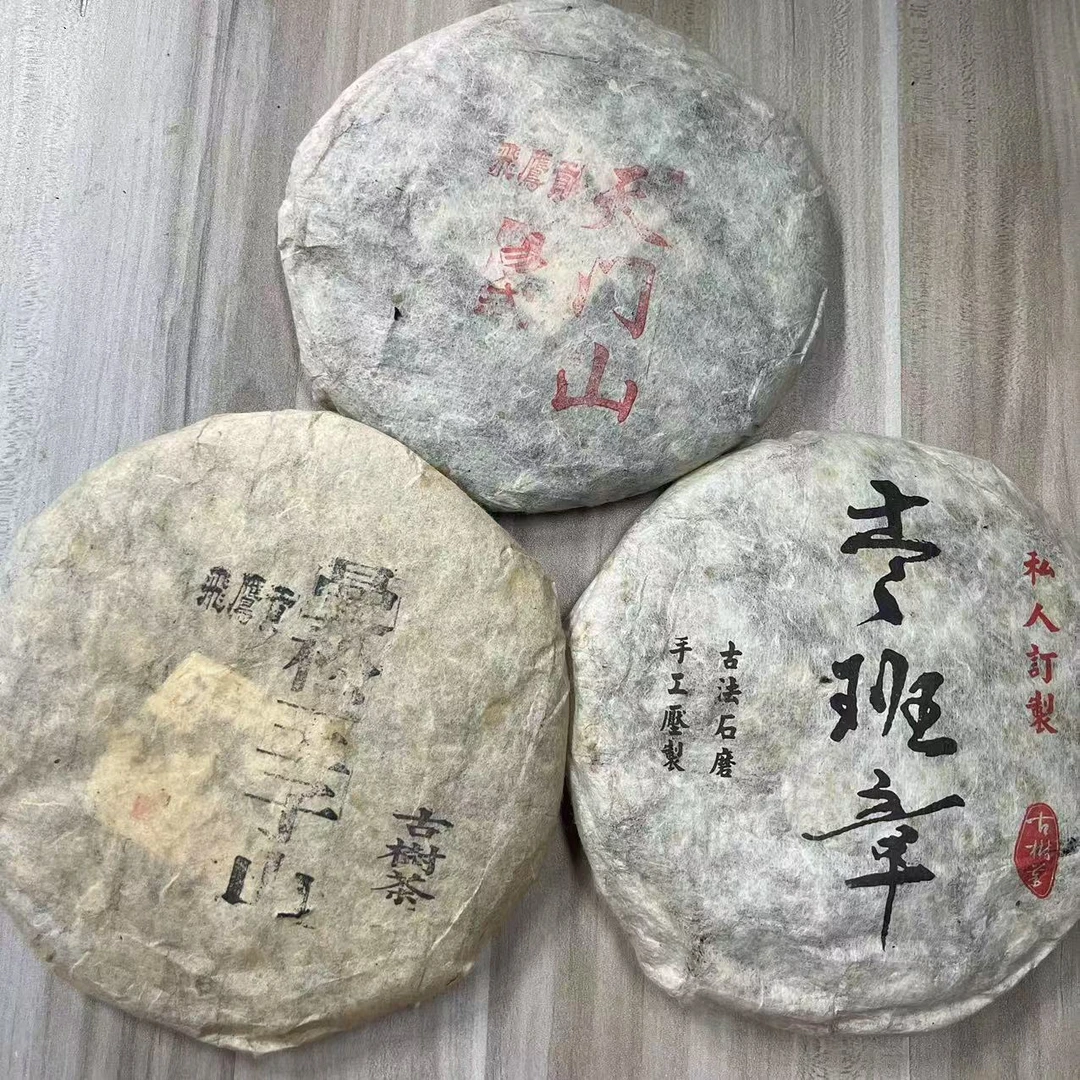 天门山
飛鷹貢
曼松王子山
飛鷹貢
古樹茶
私人訂製
古樹茶
老班章
古法石磨
手工壓製